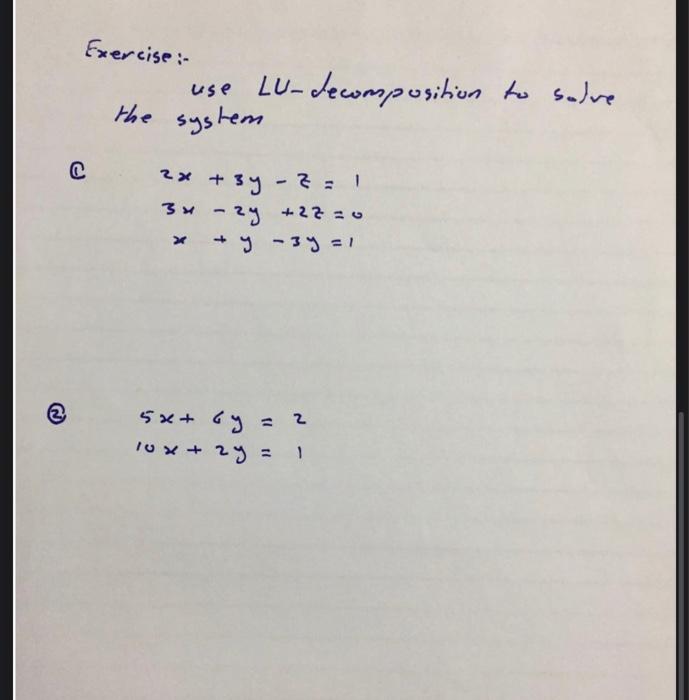 Exercise:-
use LU-decomposition to solve
the system
① 2x + 3y - z = 1
3x - 2y + 2z = 0
x + y - 3y = 1
② 5x + 6y = 2
10x + 2y = 1